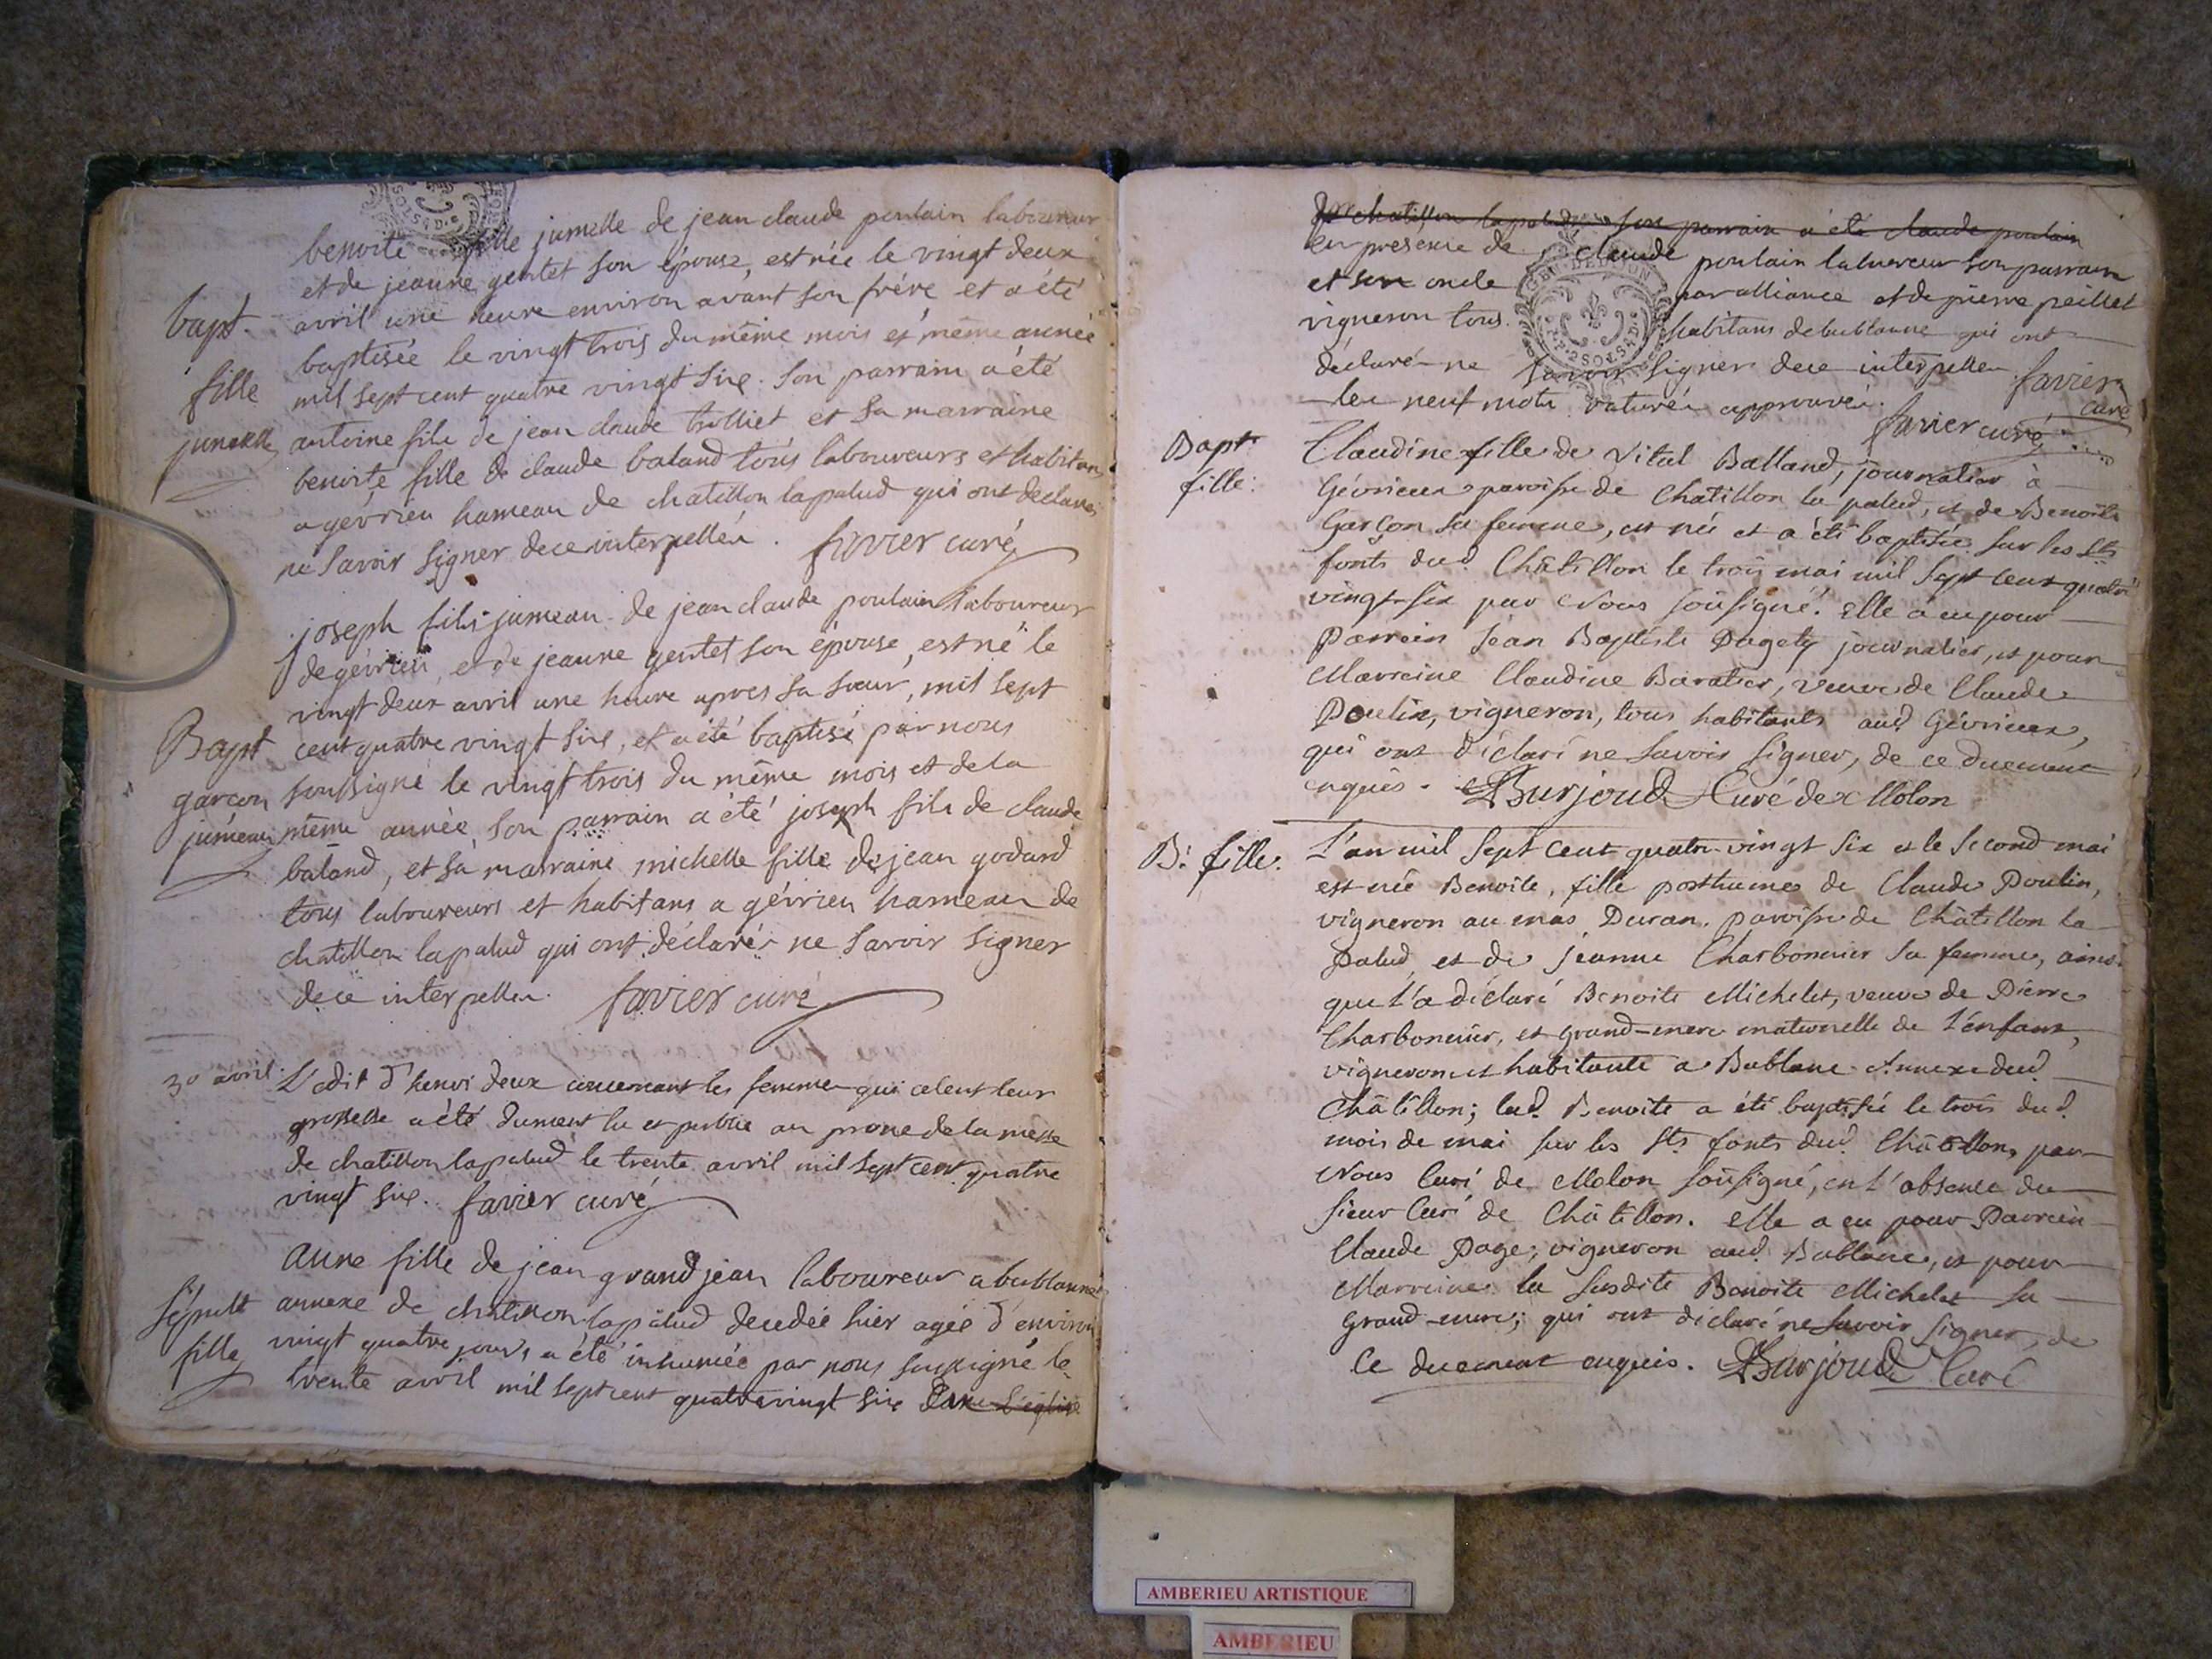 benoite fille jumelle de jean claude poulain laboureur
et de jeanne gentet son épouse, est née le vingt deux
avril une heure environ avant son frére et a été
bapt.
baptisée le vingt trois du même mois et même année
fille
mil sept cent quatre vingt six. Son parrain a été
jumelle
antoine fils de jean claude trolliet et sa marraine
benoite fille de claude baland tous laboureurs et habitans
a gévrieu hameau de chatillon lapalud qui ont déclarés
ne savoir signer de ce interpellés. favier curé
joseph fils jumeau de jean claude poulain laboureur
de gévrieu, et de jeanne gentet son épouse, est né le
vingt deux avril une heure apres sa sœur, mil sept
Bapt
cent quatre vingt six, et a été baptisé par nous
garcon
soussigné le vingt trois du même mois et de la
jumeau
même année, son parrain a été joseph fils de claude
baland, et sa marraine michelle fille de jean godard
tous laboureurs et habitans a gévrieu hameau de
chatillon lapalud qui ont déclarés ne savoir signer
de ce interpellés. favier curé
30 avril.
L'edit d'henri deux concernant les femmes qui celent leur
grossesse a été dument lu et publié au prone de la messe
de chatillon lapalud le trente avril mil sept cent quatre
vingt six. favier curé
anne fille de jean grandjean laboureur a bublanne
Sépult
annexe de chatillon lapalud decedée hier agée d'environ
fille
vingt quatre jours a été inhumée par nous soussigné le
trente avril mil sept cent quatre vingt six dans l'église
de chatillon lapalud son parrain a été claude poulain
en presence de claude poulain laboureur son parrain
et son oncle par alliance et de pierre peillet
vigneron tous habitans de bublanne qui ont
déclaré ne savoir signer de ce interpellés favier curé
les neuf mots raturés approuvés. favier curé
Bapt.
fille:
Claudine fille de Vital Balland, journalier à
Gévrieux paroisse de Chatillon la palud, et de Benoite
Garçon sa femme, est née et a été baptisée sur les Sts
fonts dud. Châtillon le trois mai mil sept cent quatre
vingt-six par Nous soûsigné. Elle a eu pour
Parrain Jean Baptiste Pagety journalier, et pour
Marraine Claudine Baratier, veuve de Claude
Poulin, vigneron, tous habitants aud. Gévrieux,
qui ont déclaré ne savoir signer, de ce duement
enquis. Burjoud Curé de Molon
B. fille.
L'an mil sept cent quatre-vingt six et le second mai
est née Benoite, fille posthume de Claude Poulin,
vigneron au mas Duran, paroisse de Châtillon la
palud, et de Jeanne Charbonnier sa femme, ainsi
que l'a déclaré Benoite Michelet, veuve de Pierre
Charbonnier, et grand-mere maternelle de l'enfant,
vigneronne et habitante a Bublane Annexe dud.
Châtillon; lad. Benoite a été baptisée le trois dud.
mois de mai sur les Sts. fonts dud. Châtillon, par
Nous Curé de Molon soûsigné, en l'absence du
sieur Curé de Châtillon. Elle a eu pour Parrain
Claude Page, vigneron aud. Bublane, et pour
Marraine la susdite Benoite Michelet sa
grand-mere; qui ont déclaré ne savoir signer, de
ce duement enquis. Burjoud Curé
AMBERIEU ARTISTIQUE
AMBERIEU